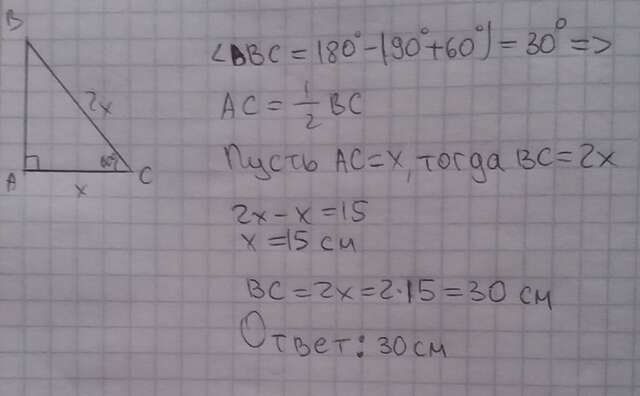 B
∠ABC = 180° - (90° + 60°) = 30° =>
2x
AC = 1/2 BC
60°
A
C
x
Пусть AC = x, тогда BC = 2x
2x - x = 15
x = 15 см
BC = 2x = 2·15 = 30 см
Ответ: 30 см